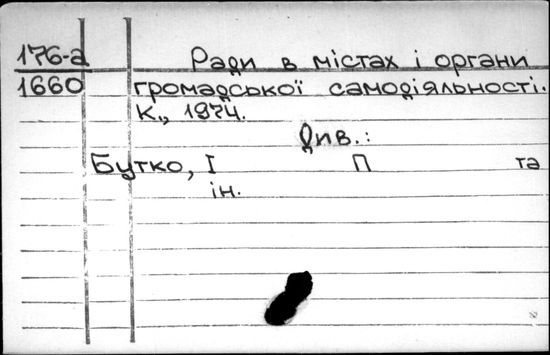 176-а Ради в містах і органи
1660 громадської самодіяльності.
К., 1974.
Див.:
Бутко, І П та
ін.